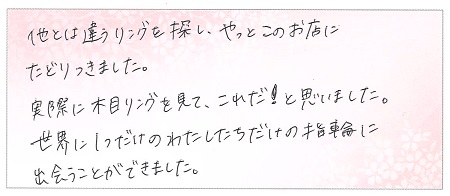 他とは違うリングを探し、やっとこのお店に
たどりつきました。
実際に木目リングを見て、これだ!と思いました。
世界に1つだけのわたしたちだけの指輪に
出会うことができました。